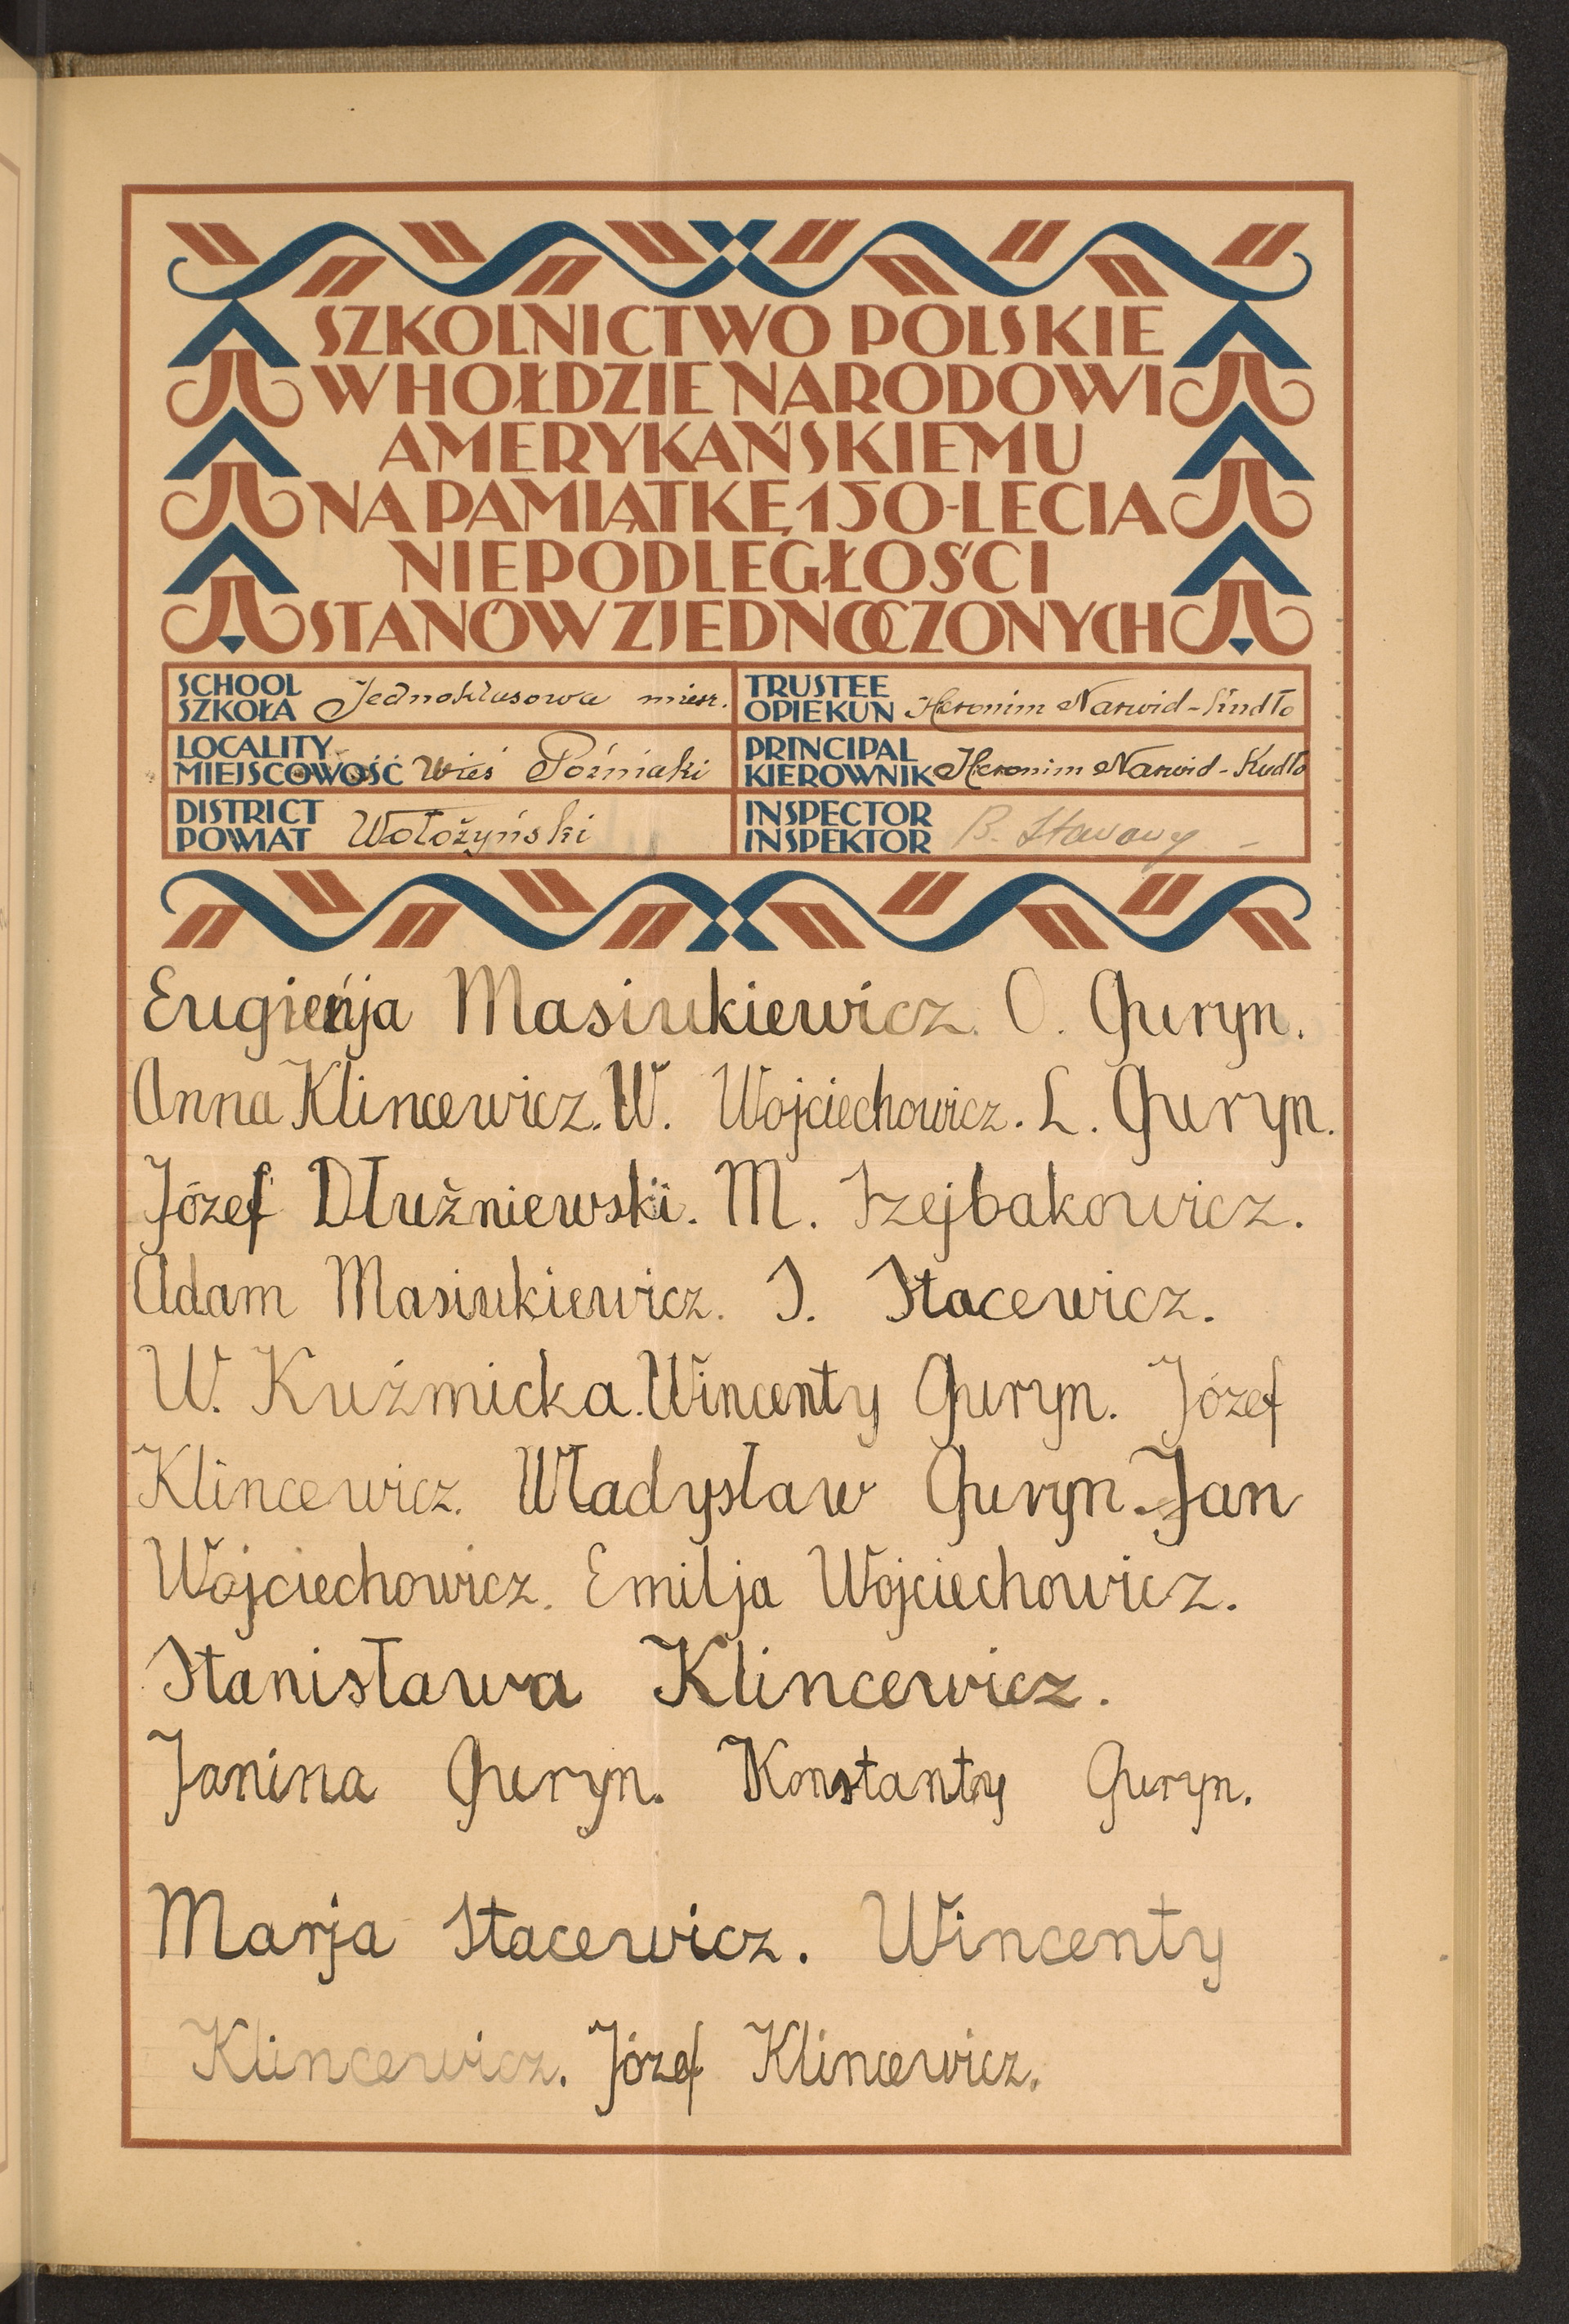 SZKOLNICTWO POLSKIE
W HOŁDZIE NARODOWI
AMERYKAŃSKIEMU
NA PAMIĄTKĘ 150-LECIA
NIEPODLEGŁOŚCI
STANÓW ZJEDNOCZONYCH
SCHOOL
SZKOŁA Jednoklasowa miesz.
TRUSTEE
OPIEKUN Heronim Narwid-Kudło
LOCALITY
MIEJSCOWOŚĆ Wieś Poźniaki
PRINCIPAL
KIEROWNIK Heronim Narwid-Kudło
DISTRICT
POWIAT Wołożyński
INSPECTOR
INSPEKTOR B. Stawowy
Eugienja Masiukiewicz. O. Guryn.
Anna Klincewicz. W. Wojciechowicz. L. Guryn.
Józef Dłużniewski. M. Szejbakowicz.
Adam Masiukiewicz. S. Stacewicz.
W. Kuźmicka. Wincenty Guryn. Józef
Klincewicz. Władysław Guryn. Jan
Wojciechowicz. Emilja Wojciechowicz.
Stanisława Klincewicz.
Janina Guryn. Konstanty Guryn.
Marja Stacewicz. Wincenty
Klincewicz. Józef Klincewicz.